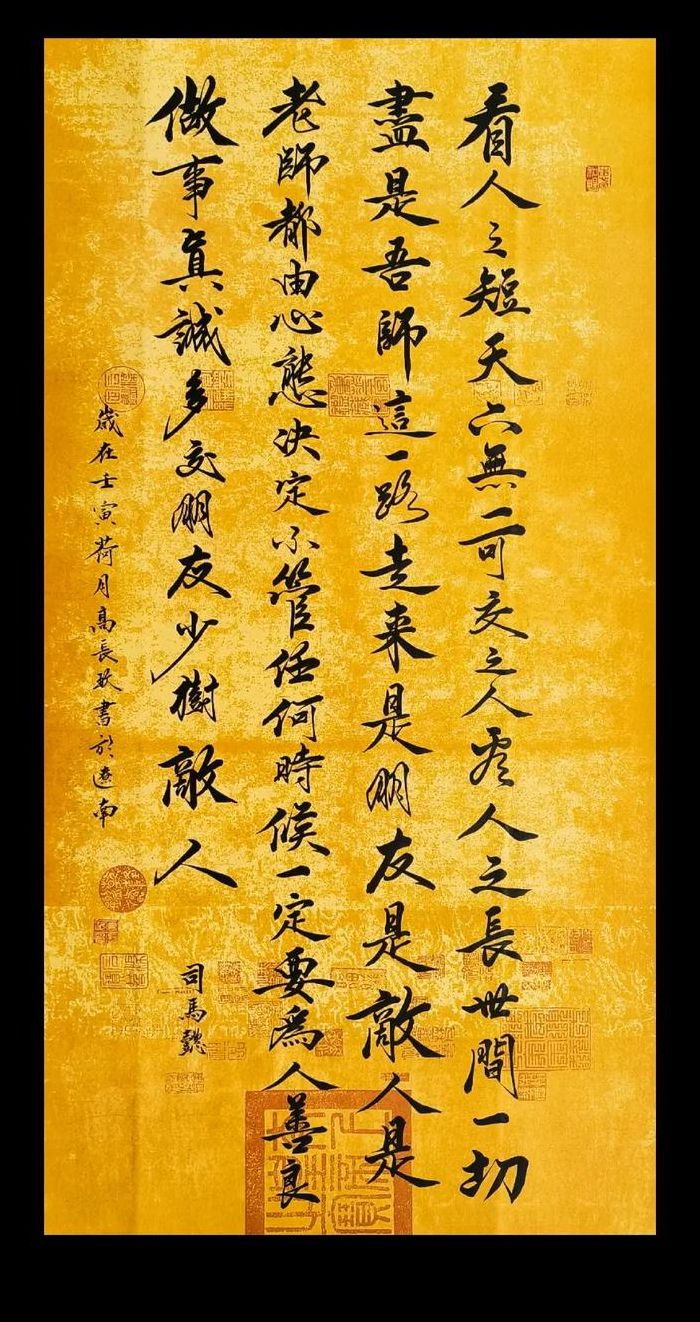 看人之短天下無一可交之人看人之長世間一切
盡是吾師這一路走来是朋友是敵人是
老師都由心態决定不管任何時候一定要為人善良
做事真誠多交朋友少樹敵人
司馬懿
歲在壬寅荷月高長書於遼南